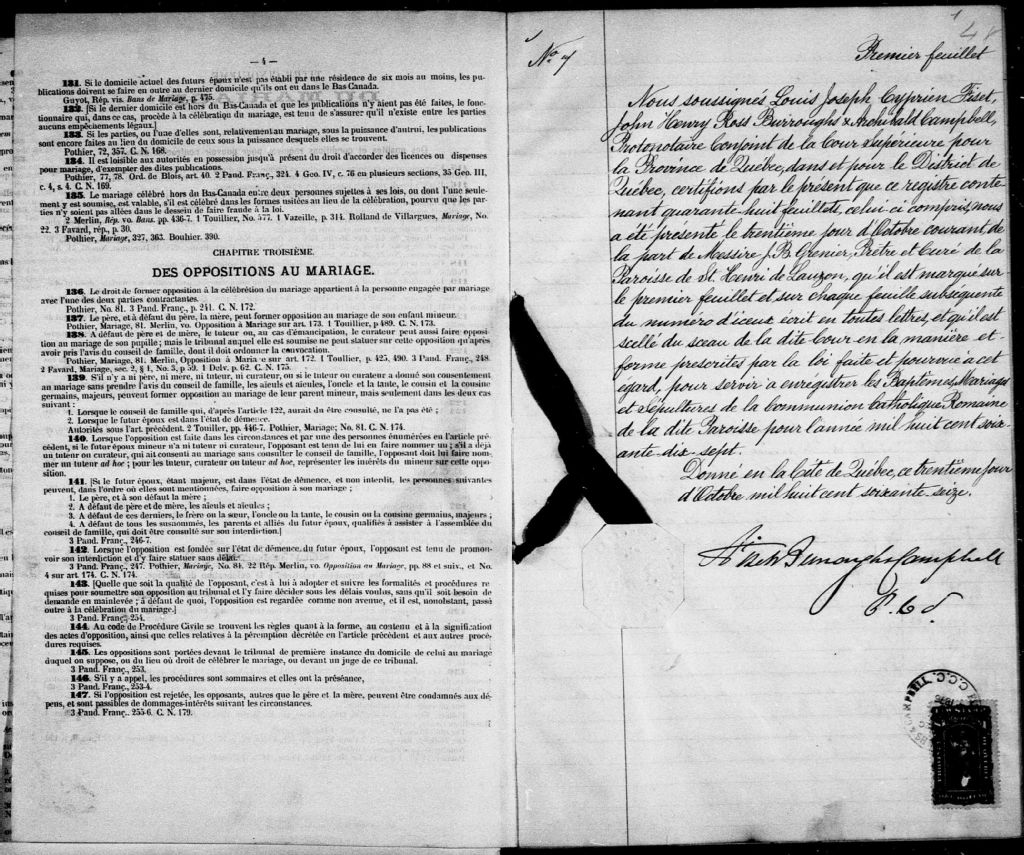 — 4 —
131. Si le domicile actuel des futurs époux n'est pas établi par une résidence de six mois au moins, les pu-
blications doivent se faire en outre au dernier domicile qu'ils ont eu dans le Bas Canada.
Guyot, Rép. vis. Bans de Mariage, p. 475.
132. [Si le dernier domicile est hors du Bas-Canada et que les publications n'y aient pas été faites, le fonc-
tionnaire qui, dans ce cas, procède à la célébration du mariage, est tenu de s'assurer qu'il n'existe entre les parties
aucuns empêchements légaux.]
133. Si les parties, ou l'une d'elles sont, relativement au mariage, sous la puissance d'autrui, les publications
sont encore faites au lieu du domicile de ceux sous la puissance desquels elles se trouvent.
Pothier, 72, 357. C. N. 168.
134. Il est loisible aux autorités en possession jusqu'à présent du droit d'accorder des licences ou dispenses
pour mariage, d'exempter des dites publications.
Pothier, 77, 78. Ord. de Blois, art. 40. 2 Pand. Franç., 324. 4 Geo. IV, c. 76 en plusieurs sections, 35 Geo. III,
c. 4, s. 4. C. N. 169.
135. Le mariage célébré hors du Bas-Canada entre deux personnes sujettes à ses lois, ou dont l'une seule-
ment y est soumise, est valable, s'il est célébré dans les formes usitées au lieu de la célébration, pourvu que les par-
ties n'y soient pas allées dans le dessein de faire fraude à la loi.
2 Merlin, Rép. vo. Bans. pp. 436-7. 1 Touiller, No. 577. 1 Vazeille, p. 314. Rolland de Villargues, Mariage, No.
22. 3 Favard, rép., p. 30.
Pothier, Mariage, 327, 363. Bouhier. 390.
CHAPITRE TROISIÈME.
DES OPPOSITIONS AU MARIAGE.
136. Le droit de former opposition à la célébration du mariage appartient à la personne engagée par mariage
avec l'une des deux parties contractantes.
Pothier, No. 81. 3 Pand. Franç., p. 241. C. N. 172.
137. Le père, et à défaut du père, la mère, peut former opposition au mariage de son enfant mineur.
Pothier, Mariage, 81. Merlin, vo. Opposition à Mariage sur art. 173. 1 Toullier, p. 489. C. N. 173.
138. A défaut de père et de mère, le tuteur ou, au cas d'émancipation, le curateur peut aussi faire opposi-
tion au mariage de son pupille; mais le tribunal auquel elle est soumise ne peut statuer sur cette opposition qu'après
avoir pris l'avis du conseil de famille, dont il doit ordonner la convocation.
Pothier, Mariage, 81. Merlin, Opposition à Maria e sur art. 172. 1 Toullier, p. 425, 490. 3 Pand. Franç., 248.
2 Favard, Mariage, sec. 2, § 1, No. 5, p. 59. 1 Delv. p. 62. C. N. 175.
139. S'il n'y a ni père, ni mère, ni tuteur, ni curateur, ou si le tuteur ou curateur a donné son consentement
au mariage sans prendre l'avis du conseil de famille, les aïeuls et aïeules, l'oncle et la tante, le cousin et la cousine
germains, majeurs, peuvent former opposition au mariage de leur parent mineur, mais seulement dans les deux cas
suivant :
1. Lorsque le conseil de famille qui, d'après l'article 122, aurait du être consulté, ne l'a pas été ;
2. Lorsque le futur époux est dans l'état de démence.
Autorités sous l'art précédent. 2 Touiller, pp. 446-7. Pothier, Mariage; No. 81. C. N. 174.
140. Lorsque l'opposition est faite dans les circonstances et par une des personnes énumérées en l'article pré-
cédent, si le futur époux mineur n'a ni tuteur ni curateur, l'opposant est tenu de lui en faire nommer un; s'il a déjà
un tuteur ou curateur, qui ait consenti au mariage sans consulter le conseil de famille, l'opposant doit lui faire nom-
mer un tuteur ad hoc ; pour les tuteur, curateur ou tuteur ad hoc, représenter les intérêts du mineur sur cette oppo-
sition.
141. [Si le futur époux, étant majeur, est dans l'état de démence, et non interdit, les personnes suivantes
peuvent, dans l'ordre où elles sont mentionnées, faire opposition à son mariage ;
1. Le père, et à son défaut la mère ;
2. A défaut de père et de mère, les aïeuls et aïeules ;
3. A défaut de ces derniers, le frère ou la sœur, l'oncle ou la tante, le cousin ou la cousine germains, majeurs ;
4. A défaut de tous les susnommés, les parents et alliés du futur époux, qualifiés à assister à l'assemblée du
conseil de famille, qui doit être consulté sur son interdiction.]
3 Pand. Franç., 246-7.
142. Lorsque l'opposition est fondée sur l'état de démence du futur époux, l'opposant est tenu de promou-
voir son interdiction et d'y faire statuer sans délai.
3 Pand. Franç., 247. Pothier, Mariage, No. 81. 22 Rép. Merlin, vo. Opposition au Mariage, pp. 88 et suiv., et No.
4 sur art. 174. C. N. 174.
143. [Quelle que soit la qualité de l'opposant, c'est à lui à adopter et suivre les formalités et procédures re
quises pour soumettre son opposition au tribunal et l'y faire décider sous les délais voulus, sans qu'il soit besoin de
demande en mainlevée ; à défaut de quoi, l'opposition est regardée comme non avenue, et il est, nonobstant, passé
outre à la célébration du mariage.]
3 Pand. Franç., 254.
144. Au code de Procédure Civile se trouvent les règles quant à la forme, au contenu et à la signification
des actes d'opposition, ainsi que celles relatives à la péremption décrétée en l'article précédent et aux autres procé-
dures requises.
145. Les oppositions sont portées devant le tribunal de première instance du domicile de celui au mariage
duquel on suppose, ou du lieu où doit de célébrer le mariage, ou devant un juge de ce tribunal.
3 Pand. Franç., 253.
146. S'il y a appel, les procédures sont sommaires et elles ont la préséance,
3 Pand. Franç., 253-4.
147. Si l'opposition est rejetée, les opposants, autres que le père et la mère, peuvent être condamnés aux dé-
pens, et sont passibles de dommages-intérêts suivant les circonstances.
3 Pand. Franç.. 255-6. C. N. 179.
48
No 7
Premier feuillet
Nous soussignés Louis Joseph Cyprien Fiset,
John Henry Ross Burroughs & Archibald Campbell,
Protonotaire Conjoint de la Cour Supérieure pour
la Province de Québec, dans et pour le District de
Québec, certifions par le présent que ce registre conte
nant quarante huit feuillets, celui-ci compris, nous
a été présenté le trentième jour d'Octobre courant, de
la part de Messire J. B. Grenier, Prêtre et Curé de la
Paroisse de St. Henri de Lauzon, qu'il est marqué sur
le premier feuillet et sur chaque feuille subséquente
du numéro d'iceux écrit en toutes lettres et qu'il est
scellé du sceau de la dite Cour en la manière et
forme prescrites par la loi faite et pourvue à cet
égard, pour servir à enregistrer les Baptêmes, Mariages
et Sépultures de la Communion Catholique Romaine
de la dite Paroisse pour l'année mil huit cent soix-
ante-dix-sept.
Donné en la Cité de Québec, ce trentième jour
d'Octobre mil huit cent soixante seize.
Fiset Burroughs Campbell
P. C. S.
CAMPBELL. C.C.C.